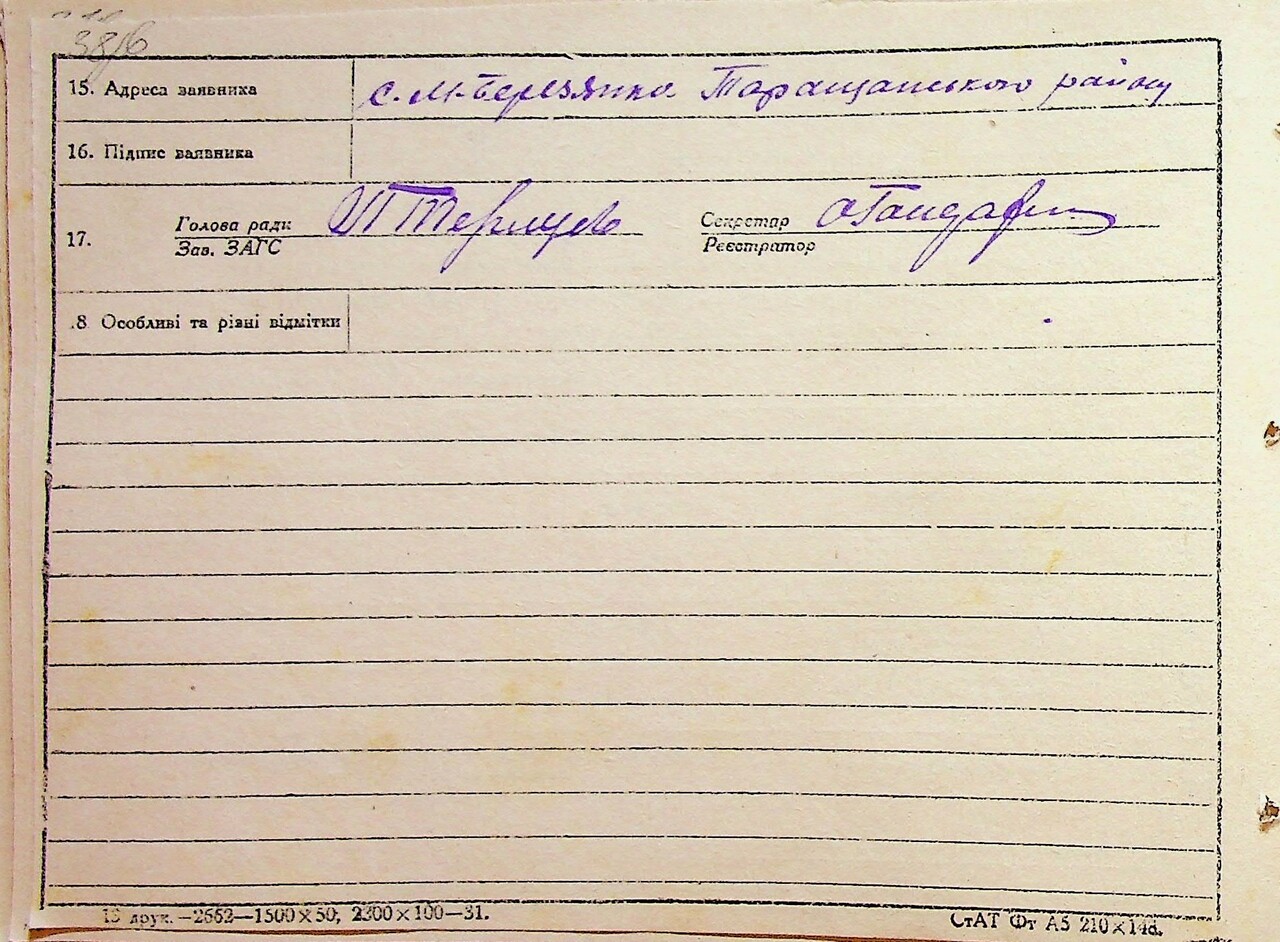 15. Адреса заявника с. М-Березянка Таращанського району
16. Підпис заявника
17. Голова ради Секретар
Зав. ЗАГС Реєстратор
.8 Особливі та різні відмітки
13 друк.—2662—1500×50; 2300×100—31.
СтАТ Фт А5 210×148.